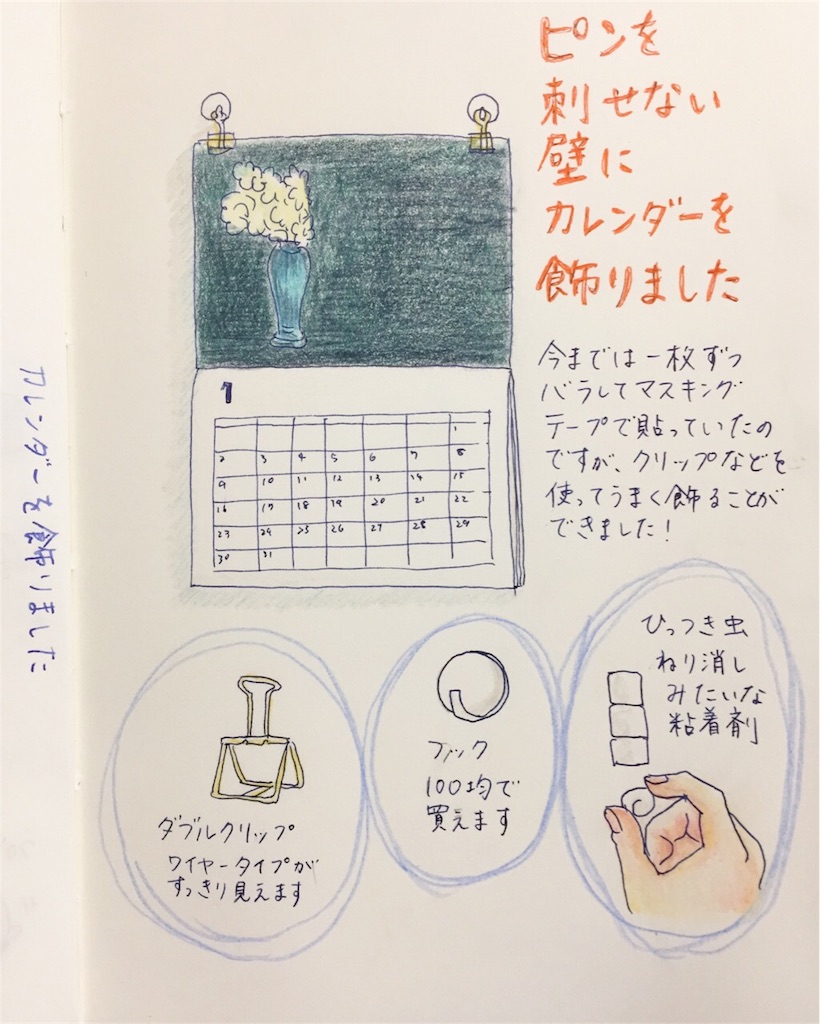 ピンを
刺せない
壁に
カレンダーを
飾りました
今までは一枚ずつ
バラしてマスキング
テープで貼っていたの
ですが、クリップなどを
使ってうまく飾ることが
できました!
1
1
2 3 4 5 6 7 8
9 10 11 12 13 14 15
16 17 18 19 20 21 22
23 24 25 26 27 28 29
30 31
カレンダーを飾りました
ダブルクリップ
ワイヤータイプが
すっきり見えます
フック
100均で
買えます
ひっつき虫
ねり消し
みたいな
粘着剤